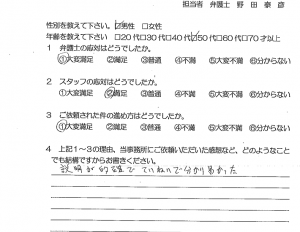 担当者 弁護士 野田泰彦
性別を教えて下さい。 ☑男性 □女性
年齢を教えて下さい □20代□30代□40代☑50代□60代□70才以上
1 弁護士の応対はどうでしたか。
①大変満足 ②満足 ③普通 ④不満 ⑤大変不満 ⑥分からない
2 スタッフの応対はどうでしたか。
①大変満足 ②満足 ③普通 ④不満 ⑤大変不満 ⑥分からない
3 ご依頼された件の進め方はどうでしたか。
①大変満足 ②満足 ③普通 ④不満 ⑤大変不満 ⑥分からない
4 上記1~3の理由、当事務所にご依頼いただいた感想など、どのようなこと
でも結構ですからお書きください。
説明が的確でていねいで分かり易かった